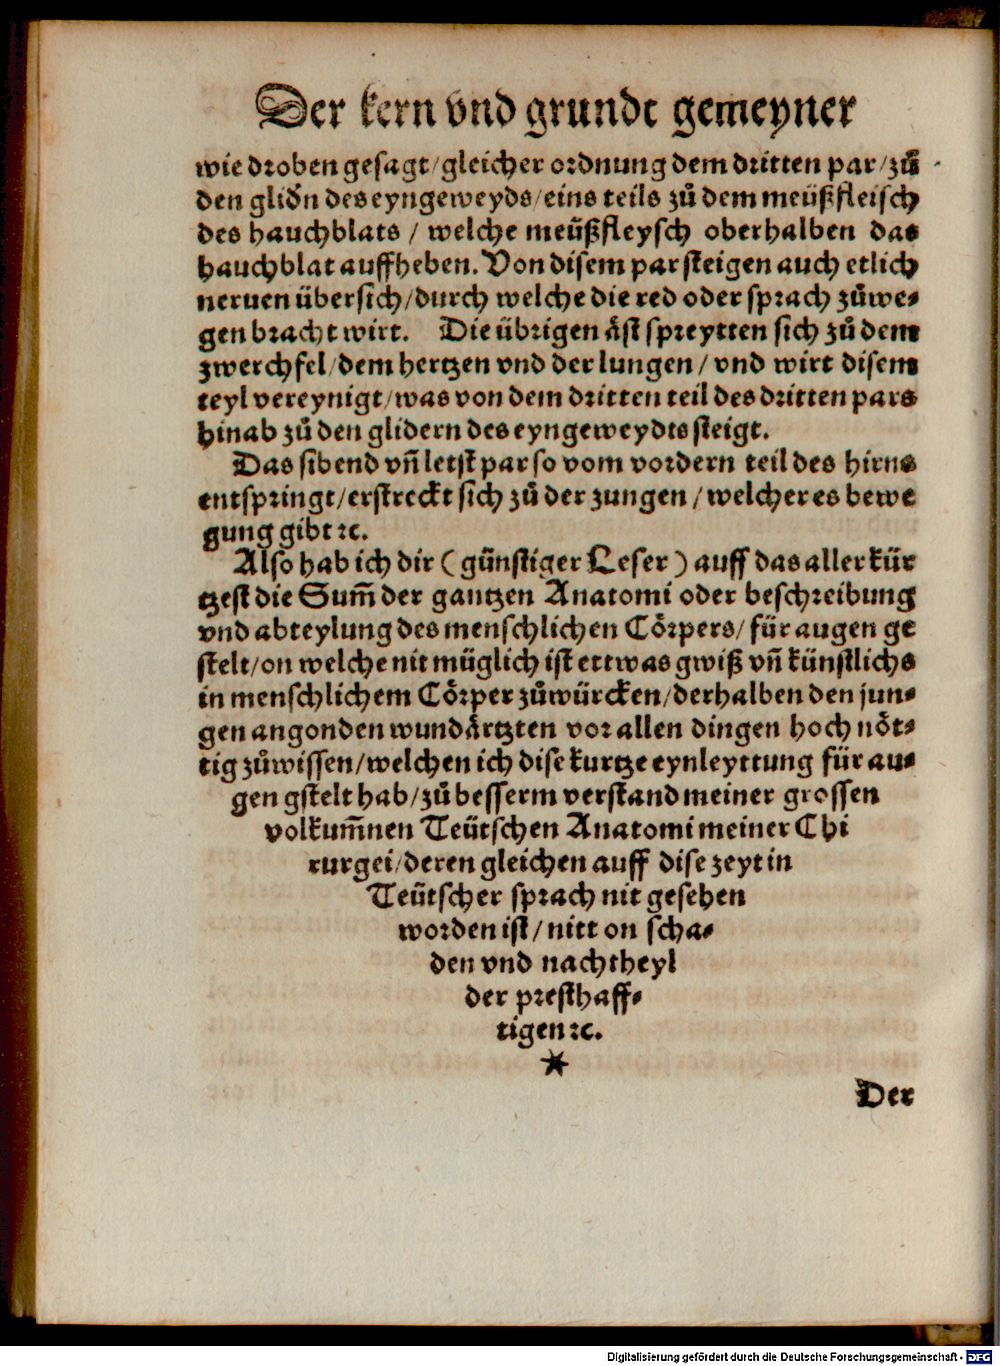 Der kern vnd grundt gemeyner
wie droben gesagt/gleicher ordnung dem dritten par/zů
den glidn̄ des eyngeweyds/eins teils zů dem meüßfleisch
des hauchblats / welche meüßfleysch oberhalben das
hauchblat auffheben. Von disem par steigen auch etlich
neruen übersich/durch welche die red oder sprach zůwe⸗
gen bracht wirt. Die übrigen äst spreytten sich zů dem
zwerchfel/dem hertzen vnd der lungen/ vnd wirt disem
teyl vereynigt/was von dem dritten teil des dritten pars
hinab zů den glidern des eyngeweydts steigt.
Das sibend vñ letst par so vom vordern teil des hirns
entspringt/erstreckt sich zů der zungen/welcher es bewe
gung gibt ꝛc.
Also hab ich dir (günstiger Leser) auff das aller kür
tzest die Sum̄ der gantzen Anatomi oder beschreibung
vnd abteylung des menschlichen Cörpers/für augen ge
stelt/on welche nit müglich ist ettwas gwiß vñ künstlichs
in menschlichem Cörper zůwürcken/derhalben den jun⸗
gen angonden wundärtzten vor allen dingen hoch nöt⸗
tig zůwissen/welchen ich dise kurtze eynleyttung für au⸗
gen gstelt hab/zů besserm verstand meiner grossen
volkum̄nen Teütschen Anatomi meiner Chi
rurgei/deren gleichen auff dise zeyt in
Teütscher sprach nit gesehen
worden ist/nitt on scha⸗
den vnd nachtheyl
der presthaff⸗
tigen ꝛc.
*
Der
Digitalisierung gefördert durch die Deutsche Forschungsgemeinschaft - DFG